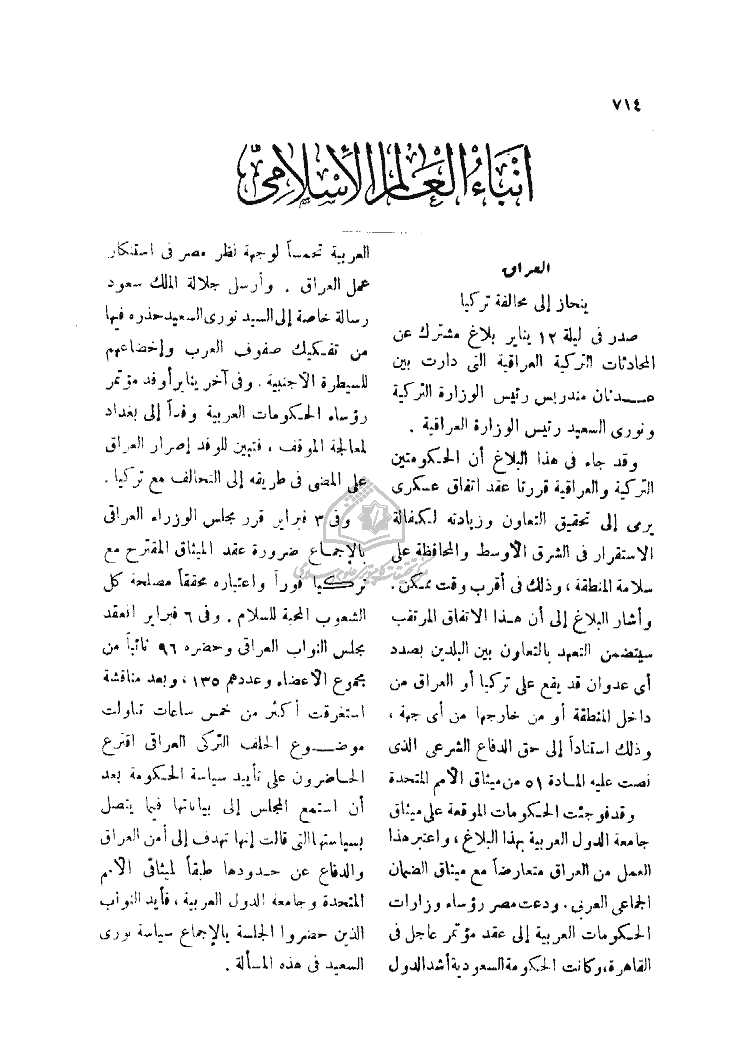 ٧١٤
أنباء العالم الإسلامي
العراق
ينحاز إلى محالفة تركيا
صدر فى ليلة ١٢ يناير بلاغ مشترك عن
المحادثات التركية العراقية التى دارت بين
عـــدنان مندريس رئيس الوزارة التركية
ونورى السعيد رئيس الوزارة العراقية .
وقد جاء فى هذا البلاغ أن الحكومتين
التركية والعراقية قررتا عقد اتفاق عسكرى
يرمى إلى تحقيق التعاون وزيادته لكفالة
الاستقرار فى الشرق الأوسط والمحافظة على
سلامة المنطقة ، وذلك فى أقرب وقت ممكن .
وأشار البلاغ إلى أن هــذا الاتفاق المرتقب
سيتضمن التعهد بالتعاون بين البلدين بصدد
أى عدوان قد يقع على تركيا أو العراق من
داخل المنطقة أو من خارجها من أى جهة ،
وذلك استناداً إلى حق الدفاع الشرعى الذى
نصت عليه المـادة ٥١ من ميثاق الأمم المتحدة
وقد فوجئت الحكومات الموقعة على ميثاق
جامعة الدول العربية بهذا البلاغ ، واعتبر هذا
العمل من العراق متعارضاً مع ميثاق الضمان
الجماعى العربى . ودعت مصر رؤساء وزارات
الحكومات العربية إلى عقد مؤتمر عاجل فى
القاهرة ، وكانت الحكومة السعودية أشد الدول
العربية تحمساً لوجهة نظر مصر فى استنكار
عمل العراق . وأرسل جلالة الملك سعود
رسالة خاصة إلى السيد نورى السعيد حذره فيها
من تفكيك صفوف العرب وإخضاعهم
للسيطرة الأجنبية . وفى آخر يناير أوفد مؤتمر
رؤساء الحكومات العربية وفداً إلى بغداد
لمعالجة الموقف ، فتبين للوفد إصرار العراق
على المضى فى طريقه إلى التحالف مع تركيا .
وفى ٣ فبراير قرر مجلس الوزراء العراقى
بالإجماع ضرورة عقد الميثاق المقترح مع
تركيا فوراً واعتباره محققاً مصلحة كل
الشعوب المحبة للسلام . وفى ٦ فبراير انعقد
مجلس النواب العراقى وحضره ٩٦ نائباً من
مجموع الأعضاء وعددهم ١٣٥ ، وبعد مناقشة
استغرقت أكثر من خمس ساعات تناولت
موضـــوع الحلف التركى العراقى اقترع
الحاضرون على تأييد سياسة الحكومة بعد
أن استمع المجلس إلى بياناتها فيما يتصل
بسياستها التى قالت إنها تهدف إلى أمن العراق
والدفاع عن حـدودها طبقاً لميثاقى الأمم
المتحدة وجامعة الدول العربية ، فأيد النواب
الذين حضروا الجلسة بالإجماع سياسة نورى
السعيد فى هذه المسألة .